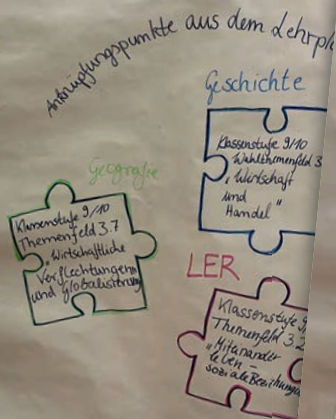 Anknüpfungspunkte aus dem Lehrpl
Geschichte
Klassenstufe 9/10
Wahlthemenfeld 3
„Wirtschaft
und
Handel"
Geografie
Klassenstufe 9/10
Themenfeld 3.7
„Wirtschaftliche
Verflechtungen
und Globalisierung
LER
Klassenstufe 9
Themenfeld 3.2
"Miteinander
leben –
soziale Beziehunge